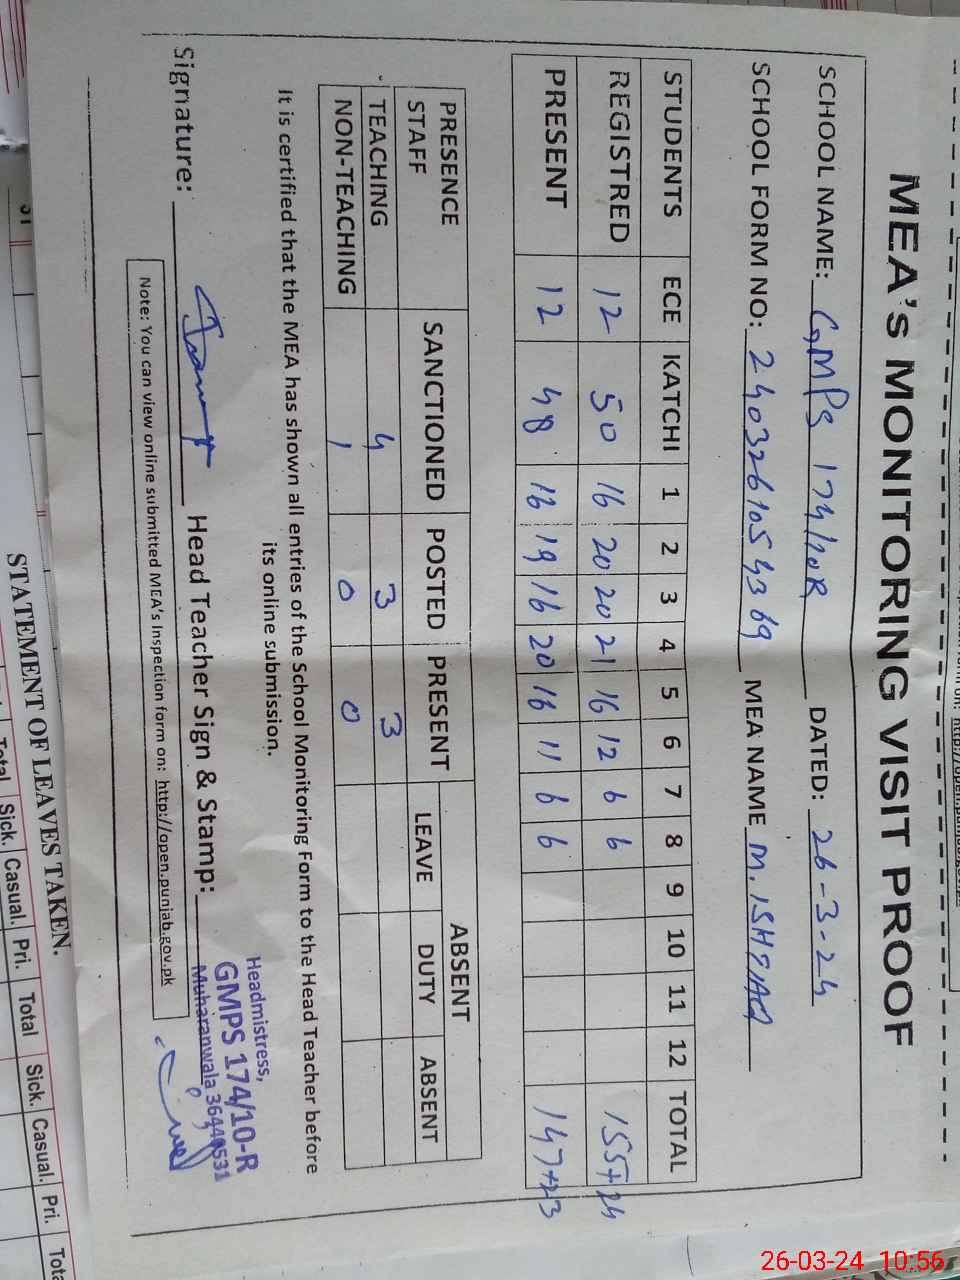 MEA's MONITORING VISIT PROOF
SCHOOL NAME: GMPS 174/10R DATED: 26-3-24
SCHOOL FORM NO: 2403261054369 MEA NAME M. ISHTIAQ
STUDENTS ECE KATCHI 1 2 3 4 5 6 7 8 9 10 11 12 TOTAL
REGISTRED 12 50 16 20 20 21 16 12 6 6 155+24
PRESENT 12 48 16 19 16 20 16 11 6 6 147+23
PRESENCE STAFF SANCTIONED POSTED PRESENT ABSENT
LEAVE DUTY ABSENT
TEACHING 4 3 3
NON-TEACHING 1 0 0
It is certified that the MEA has shown all entries of the School Monitoring Form to the Head Teacher before
its online submission.
Signature: Head Teacher Sign & Stamp:
Headmistress,
GMPS 174/10-R
Muharanwala 36440531
Note: You can view online submitted MEA's Inspection form on: http://open.punjab.gov.pk
STATEMENT OF LEAVES TAKEN.
Total Sick. Casual. Pri. Total Sick. Casual. Pri.
26-03-24 10:56